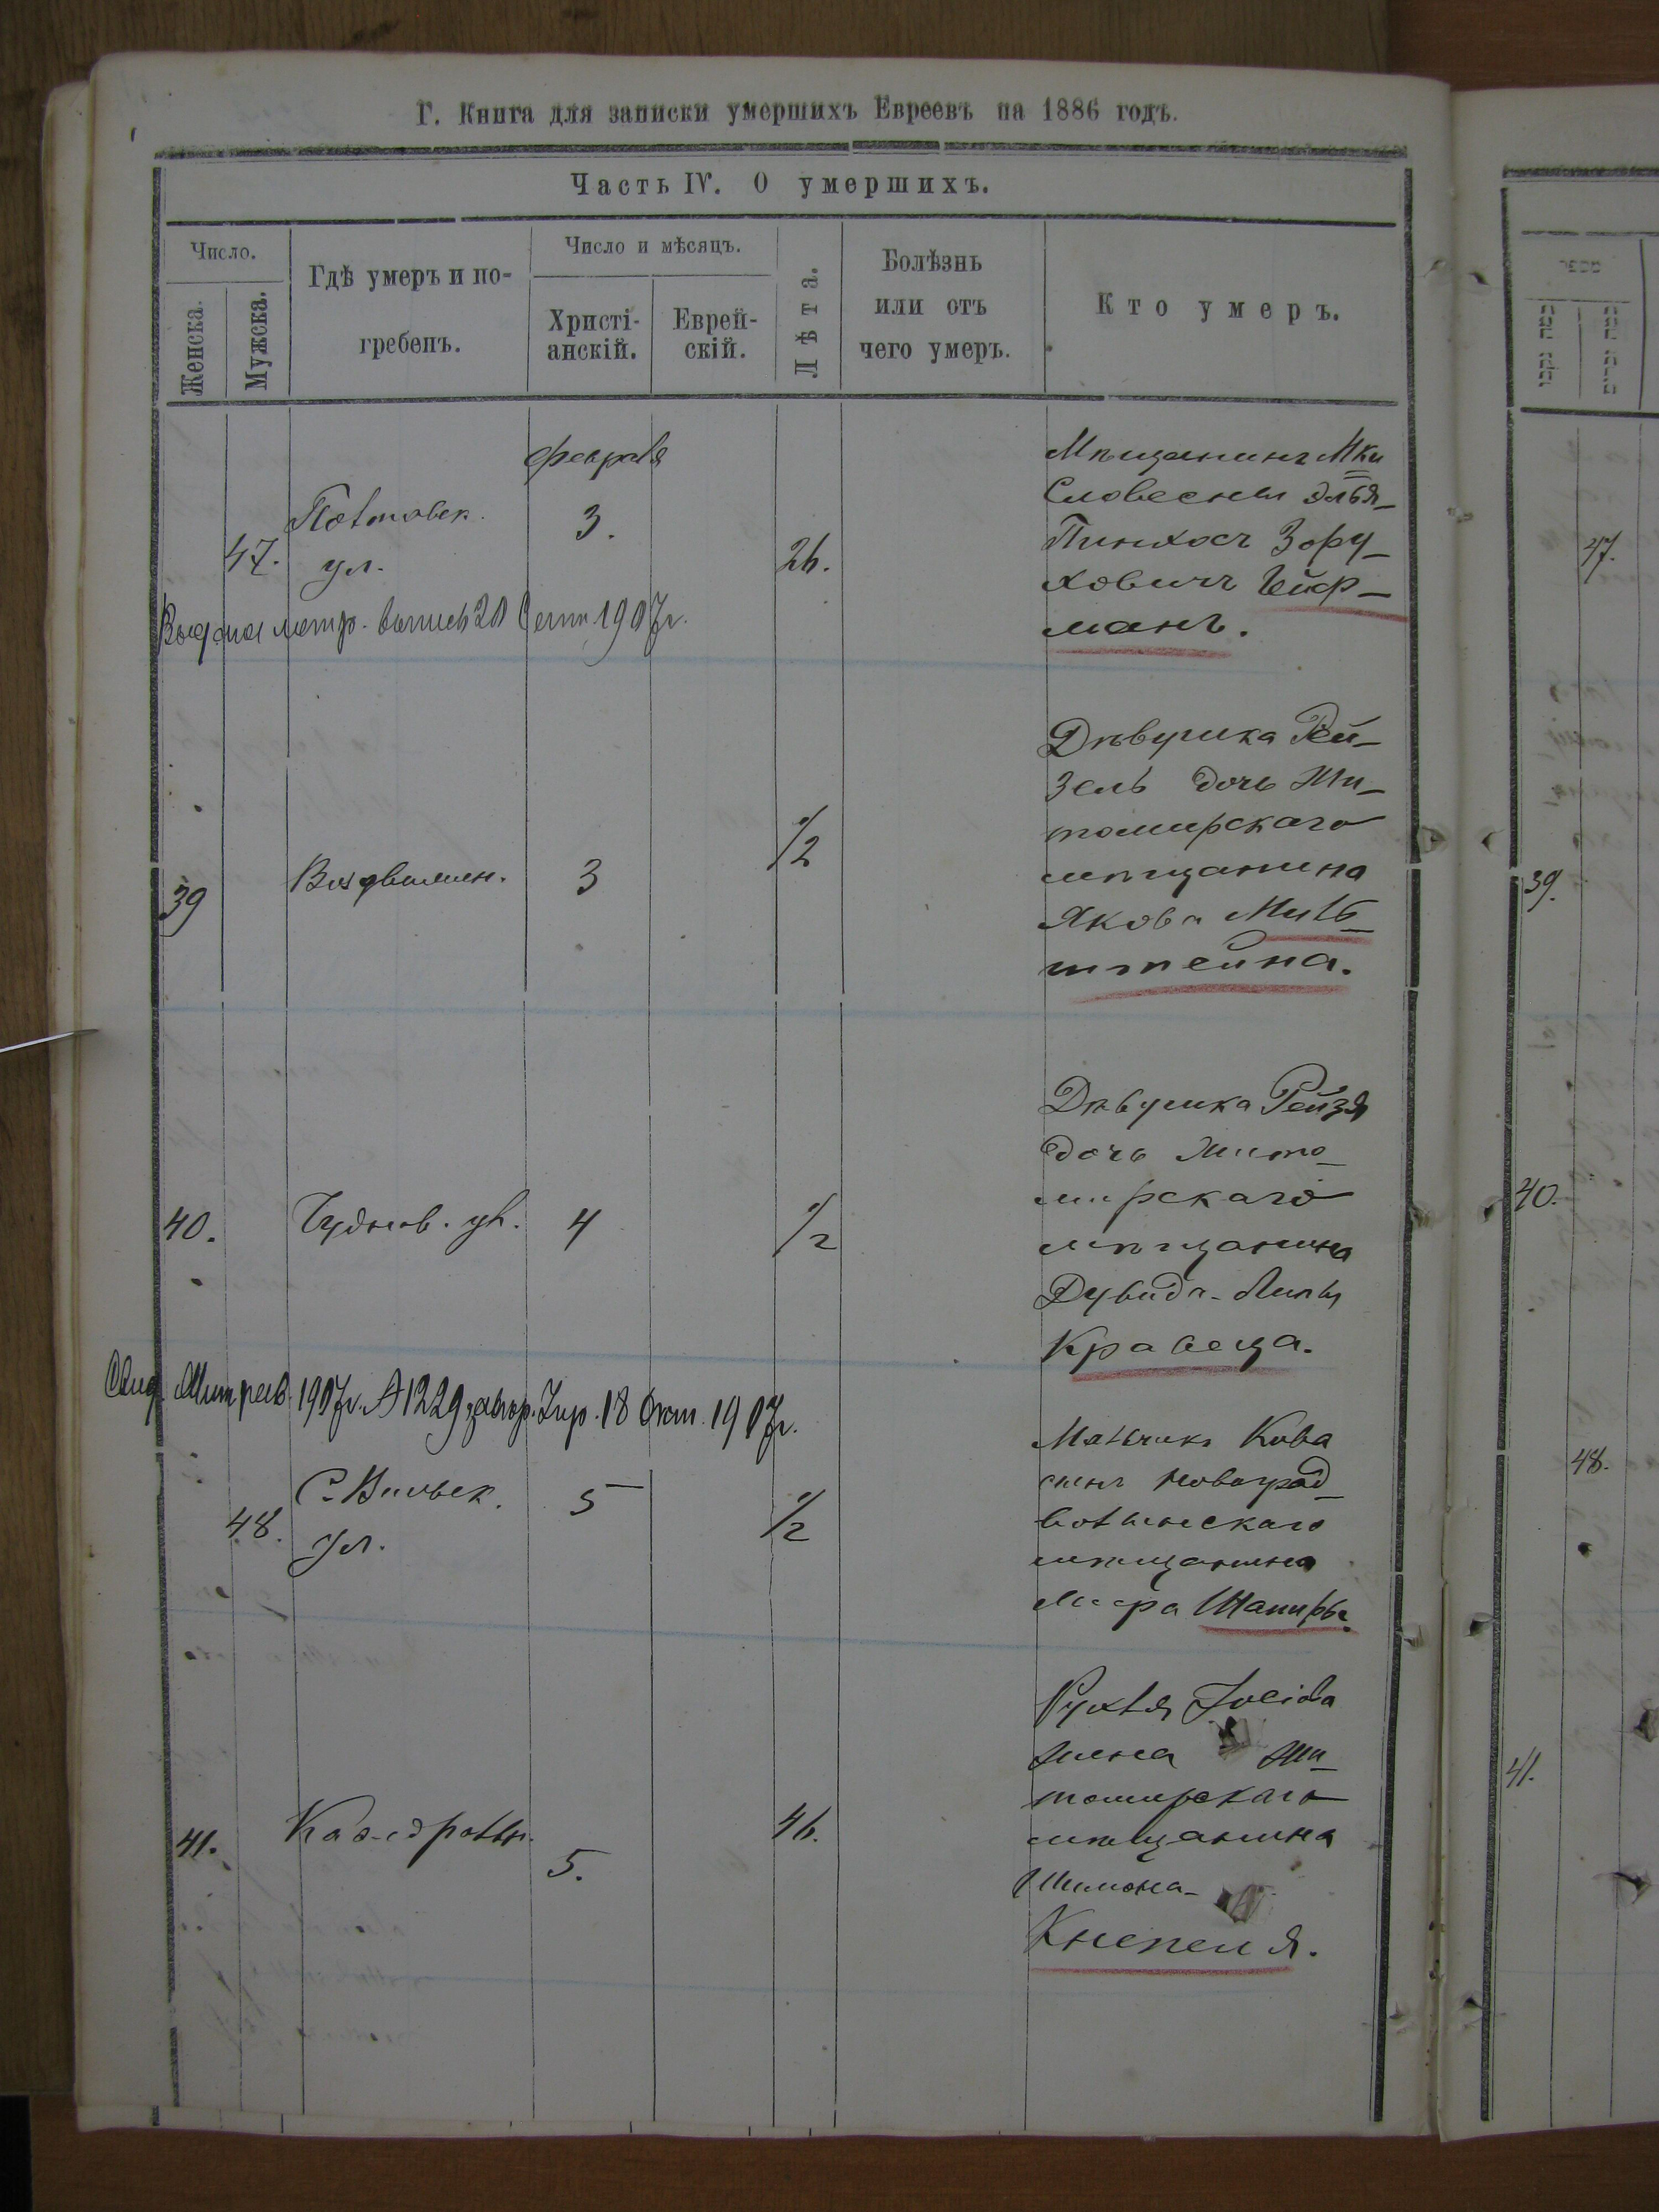 Г. Книга для записки умершихъ Евреевъ на 1886 годъ.
Часть IV. О умершихъ.
Число.
Женска.
Мужска.
Гдѣ умеръ и по-
гребенъ.
Число и мѣсяцъ.
Христі-
анскій.
Еврей-
скій.
Лѣта.
Болѣзнь
или отъ
чего умеръ.
Кто умеръ.
февраля
47.
ул.
3.
26.
Мѣщанинъ М-ки
Словесны Элья-
Пинхосъ Зору-
ховичъ Гейф-
манъ.
Выдана метр. выпись 20 Сент 1907 г.
39
Воздвижен.
3
1/2
Дѣвушка Рей-
зель дочь Жи-
томирскаго
мѣщанина
Якова Миль-
штейна.
40.
Чуднов. ул.
4
1/2
Дѣвушка Рейзя
дочь Жито-
мирскаго
мѣщанина
Дувида-Липы
Кравеца.
1907 г. № 1229, 18 Окт. 1907 г.
48.
С. Вильск.
ул.
5
1/2
Мальчикъ Кива
сынъ Новоград-
волынскаго
мѣщанина
Шапиры.
41.
Кафедральн.
5.
46.
Рухля
жена Жи-
томирскаго
мѣщанина
Шимона-
Кнепеля.
47.
39.
40.
48.
41.